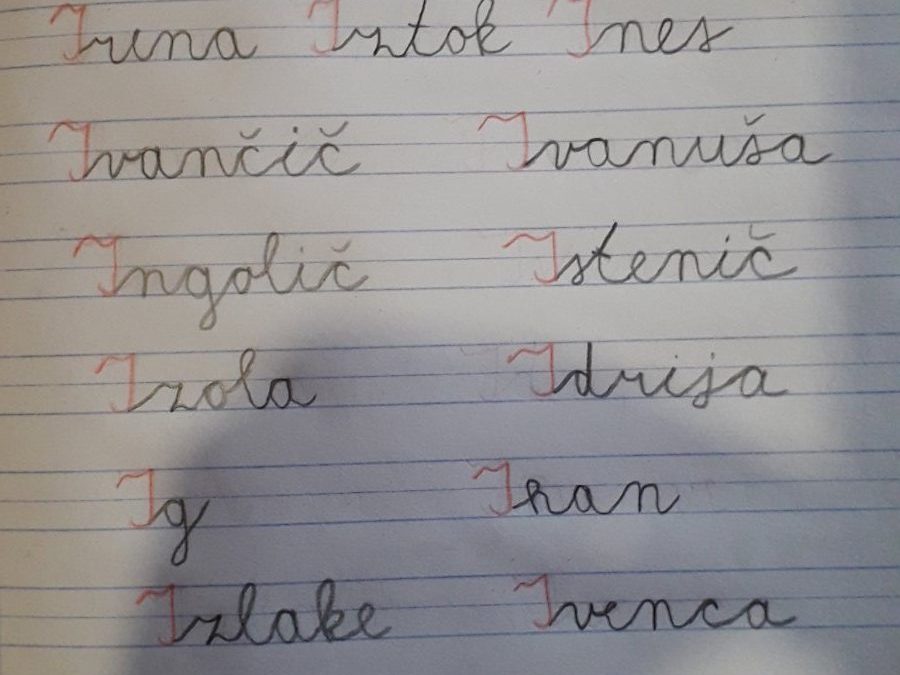 Irena Iztok Ines
Ivančič Ivanuša
Ingolič Istenič
Izola Idrija
Ig Iran
Izlake Ivenca